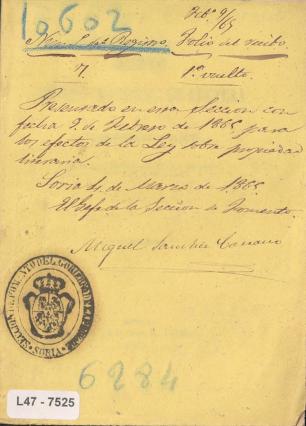 10602
Feb.º 9/65
Núm. del Registro. Folio del recibo.
71. 1º vuelto.
Presentado en esta Sección con
fecha 9 de Febrero de 1865 para
los efectos de la Ley sobre propiedad
literaria.
Soria 4 de Marzo de 1865.
El Jefe de la Sección de Fomento.
Miguel Sanchez
SECCION DE FOMENTO DEL GOBIERNO
SORIA
6284
L47 - 7525